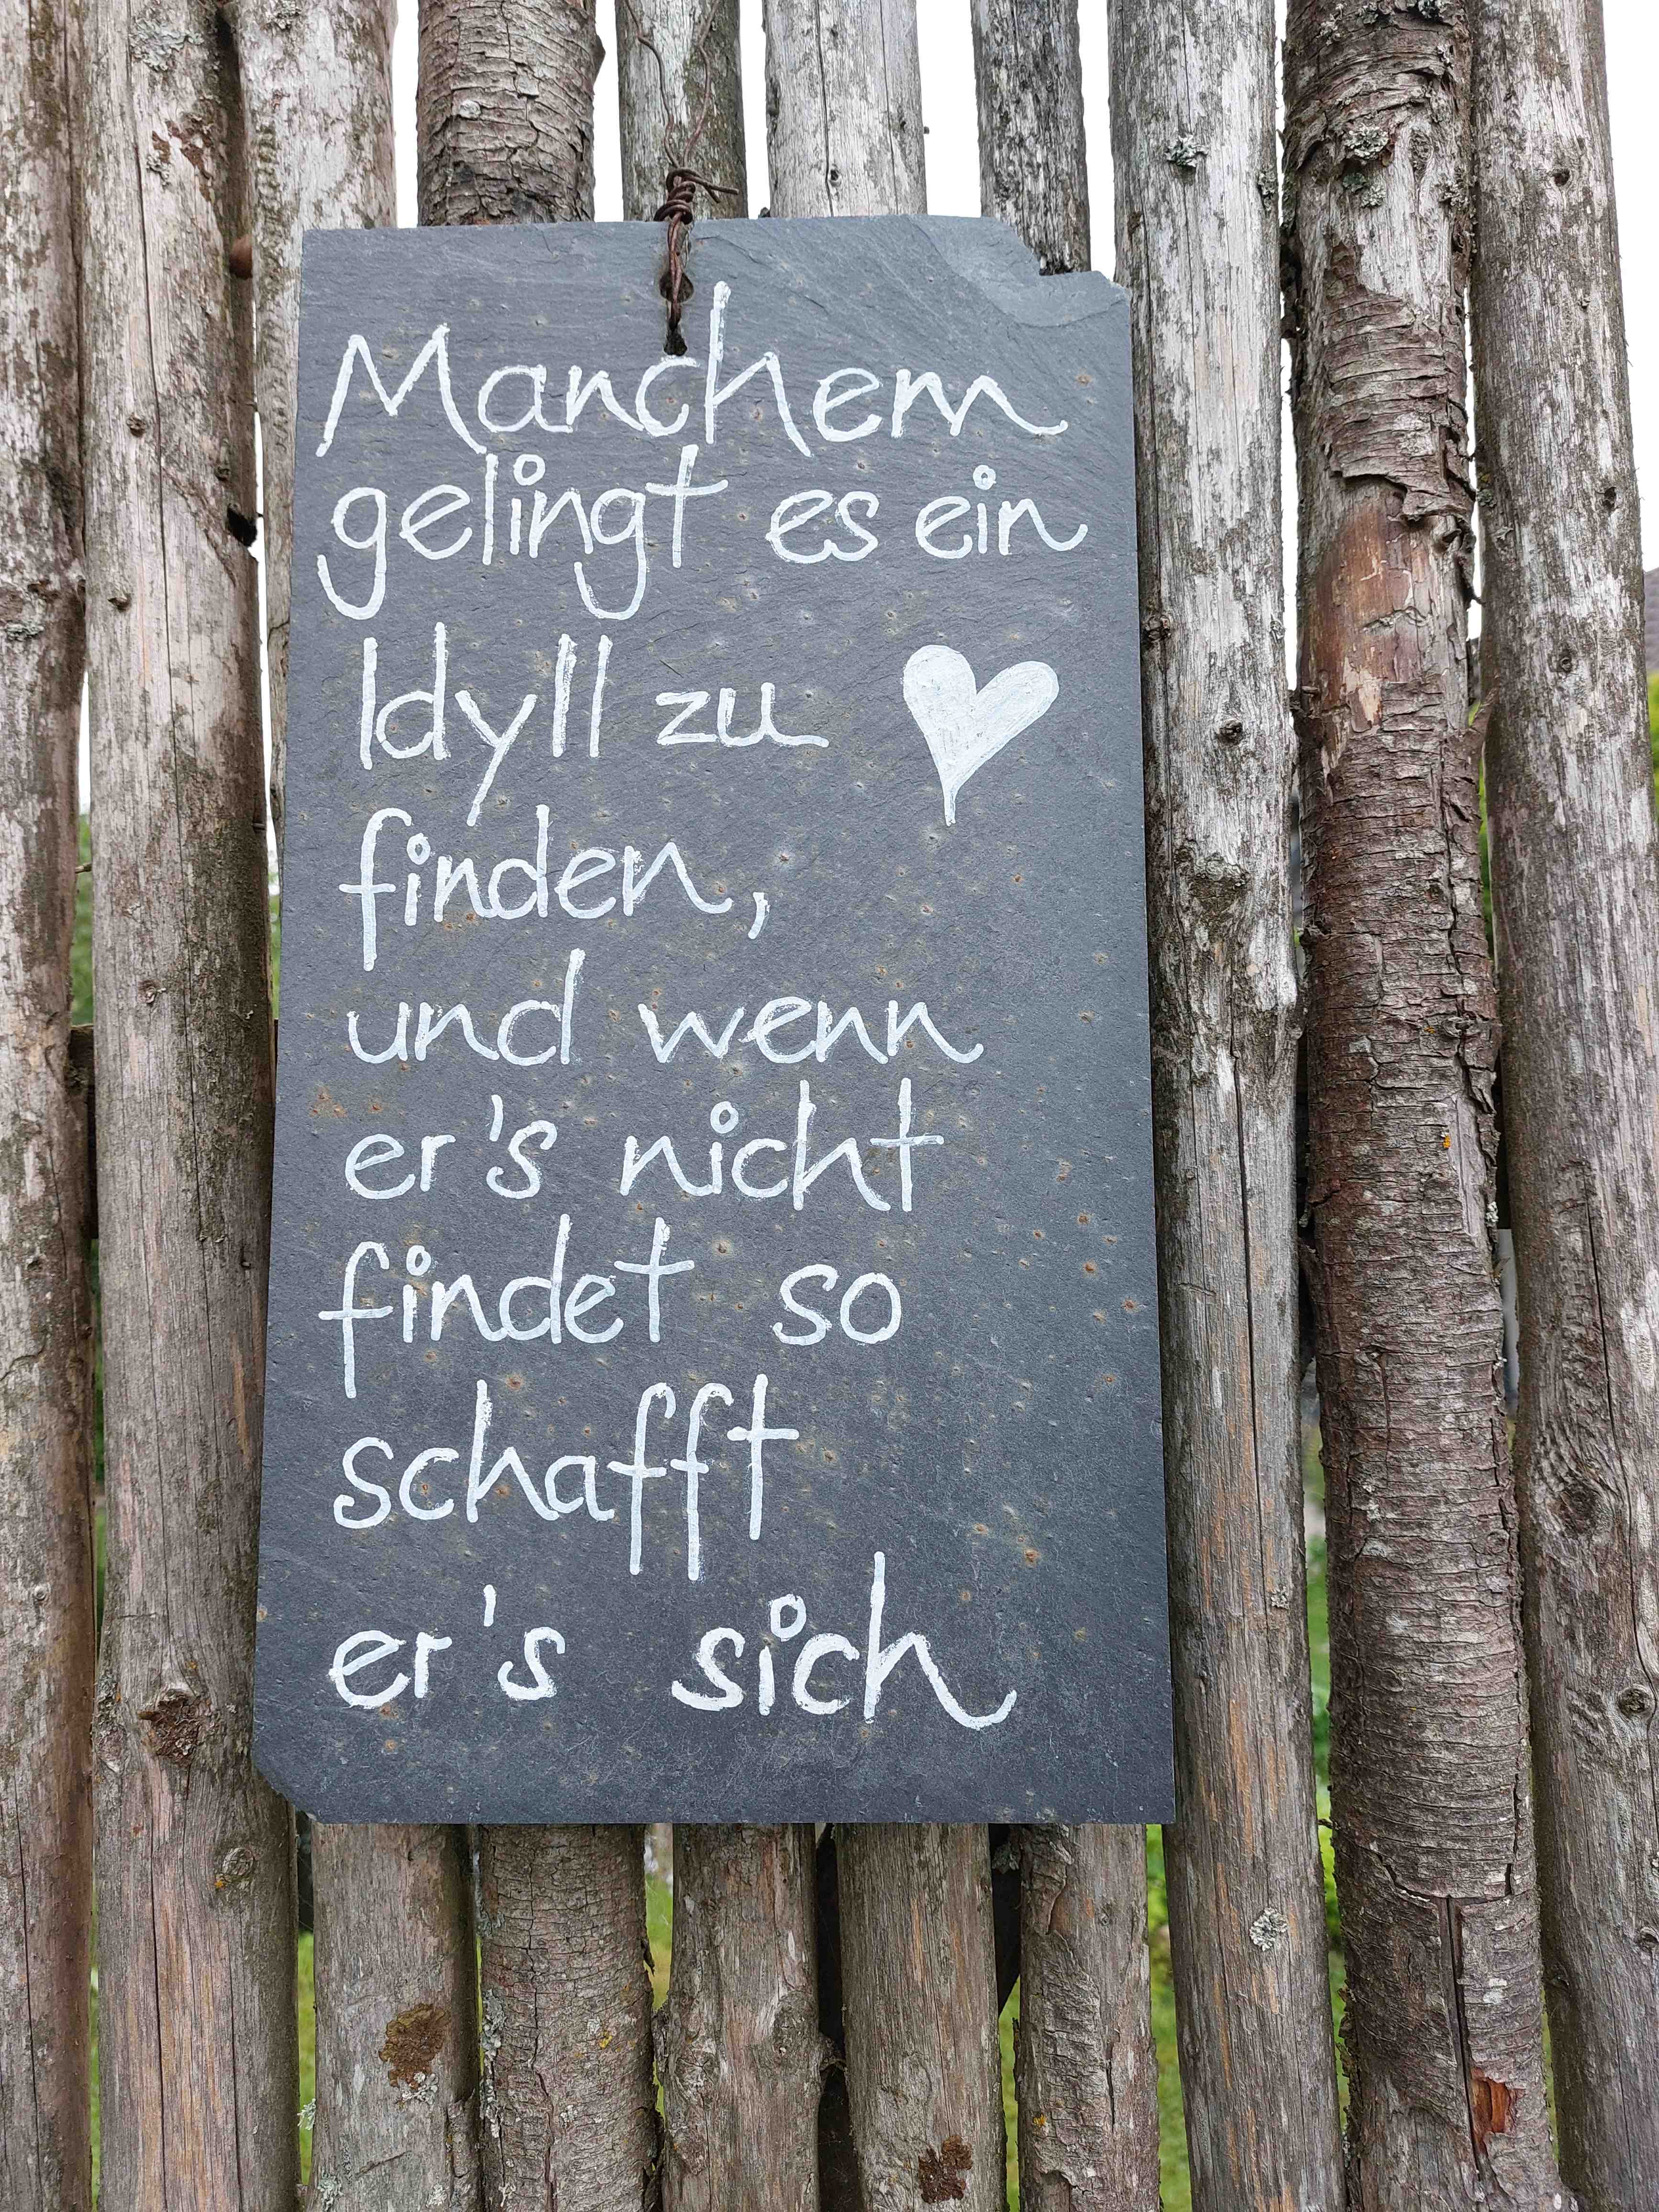 Manchem
gelingt es ein
Idyll zu
finden,
und wenn
er's nicht
findet so
schafft
er's sich